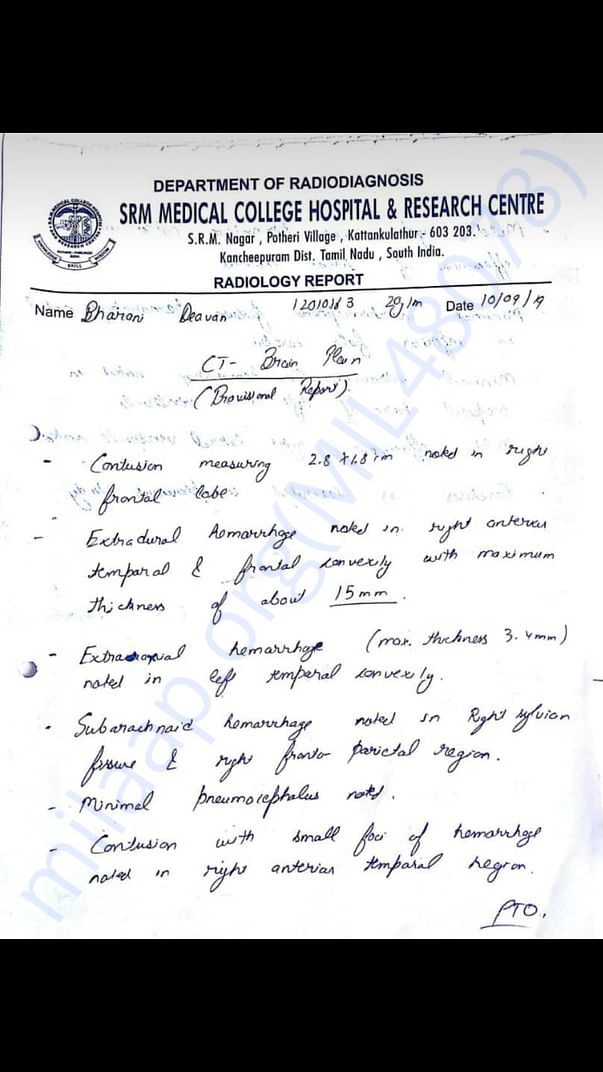 DEPARTMENT OF RADIODIAGNOSIS
SRM MEDICAL COLLEGE HOSPITAL & RESEARCH CENTRE
S.R.M. Nagar , Potheri Village , Kattankulathur - 603 203.
Kancheepuram Dist. Tamil Nadu , South India.
RADIOLOGY REPORT
Name Bharani Deavan 29/m Date 10/09/19
CT- Brain Plain
(Provisional Report)
- Contusion measuring 2.8 x 1.8 cm noted in right
frontal lobe
- Extradural hemorrhage noted in right anterior
temporal & frontal convexity with maximum
thickness of about 15mm.
- Extraaxial hemorrhage (max. thickness 3.4mm)
noted in left temporal convexity.
- Subarachnoid hemorrhage noted in Right sylvian
fissure & right fronto parietal region.
- Minimal pneumocephalus noted.
- Contusion with small foci of hemorrhage
noted in right anterior temporal region.
PTO.
milaap.org(MIL48078)